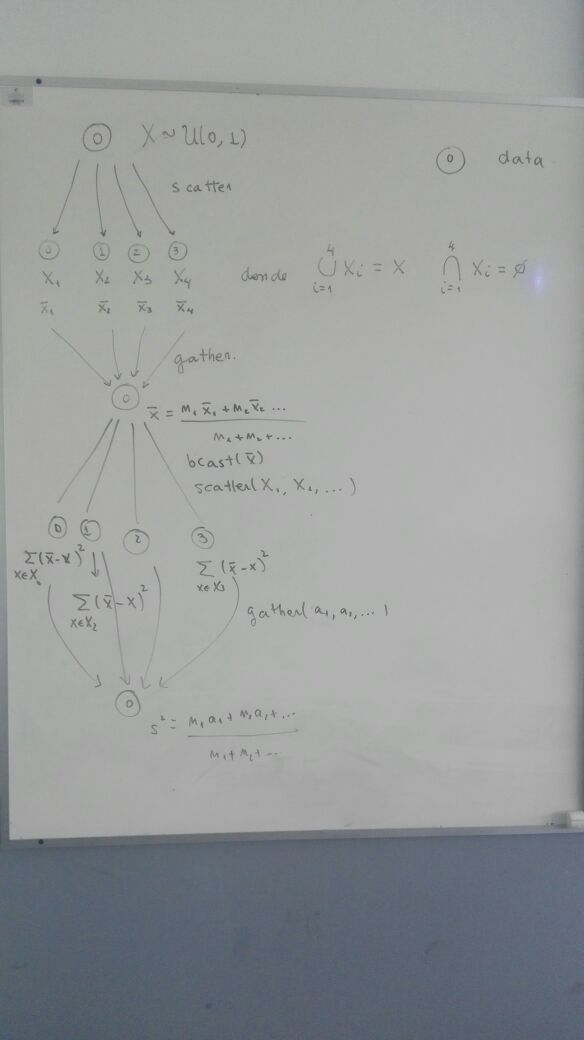 0 X ~ U(0, 1)
0 data
scatter
0 1 2 3
X₁ X₂ X₃ X₄
donde ⋃ᵢ₌₁⁴ Xᵢ = X ⋂ᵢ₌₁⁴ Xᵢ = ∅
x̄₁ x̄₂ x̄₃ x̄₄
gather.
0
x̄ = (m₁ x̄₁ + m₂ x̄₂ ...) / (m₁ + m₂ + ...)
bcast(x̄)
scatter(X₁, X₂, ...)
0 1 2 3
∑ (x̄ - x)²
x∈X
∑ (x̄ - x)²
x∈X₂
∑ (x̄ - x)²
x∈X₃
gather(a₁, a₂, ... )
0
s² = (m₁ a₁ + m₂ a₂ + ...) / (m₁ + m₂ + ...)